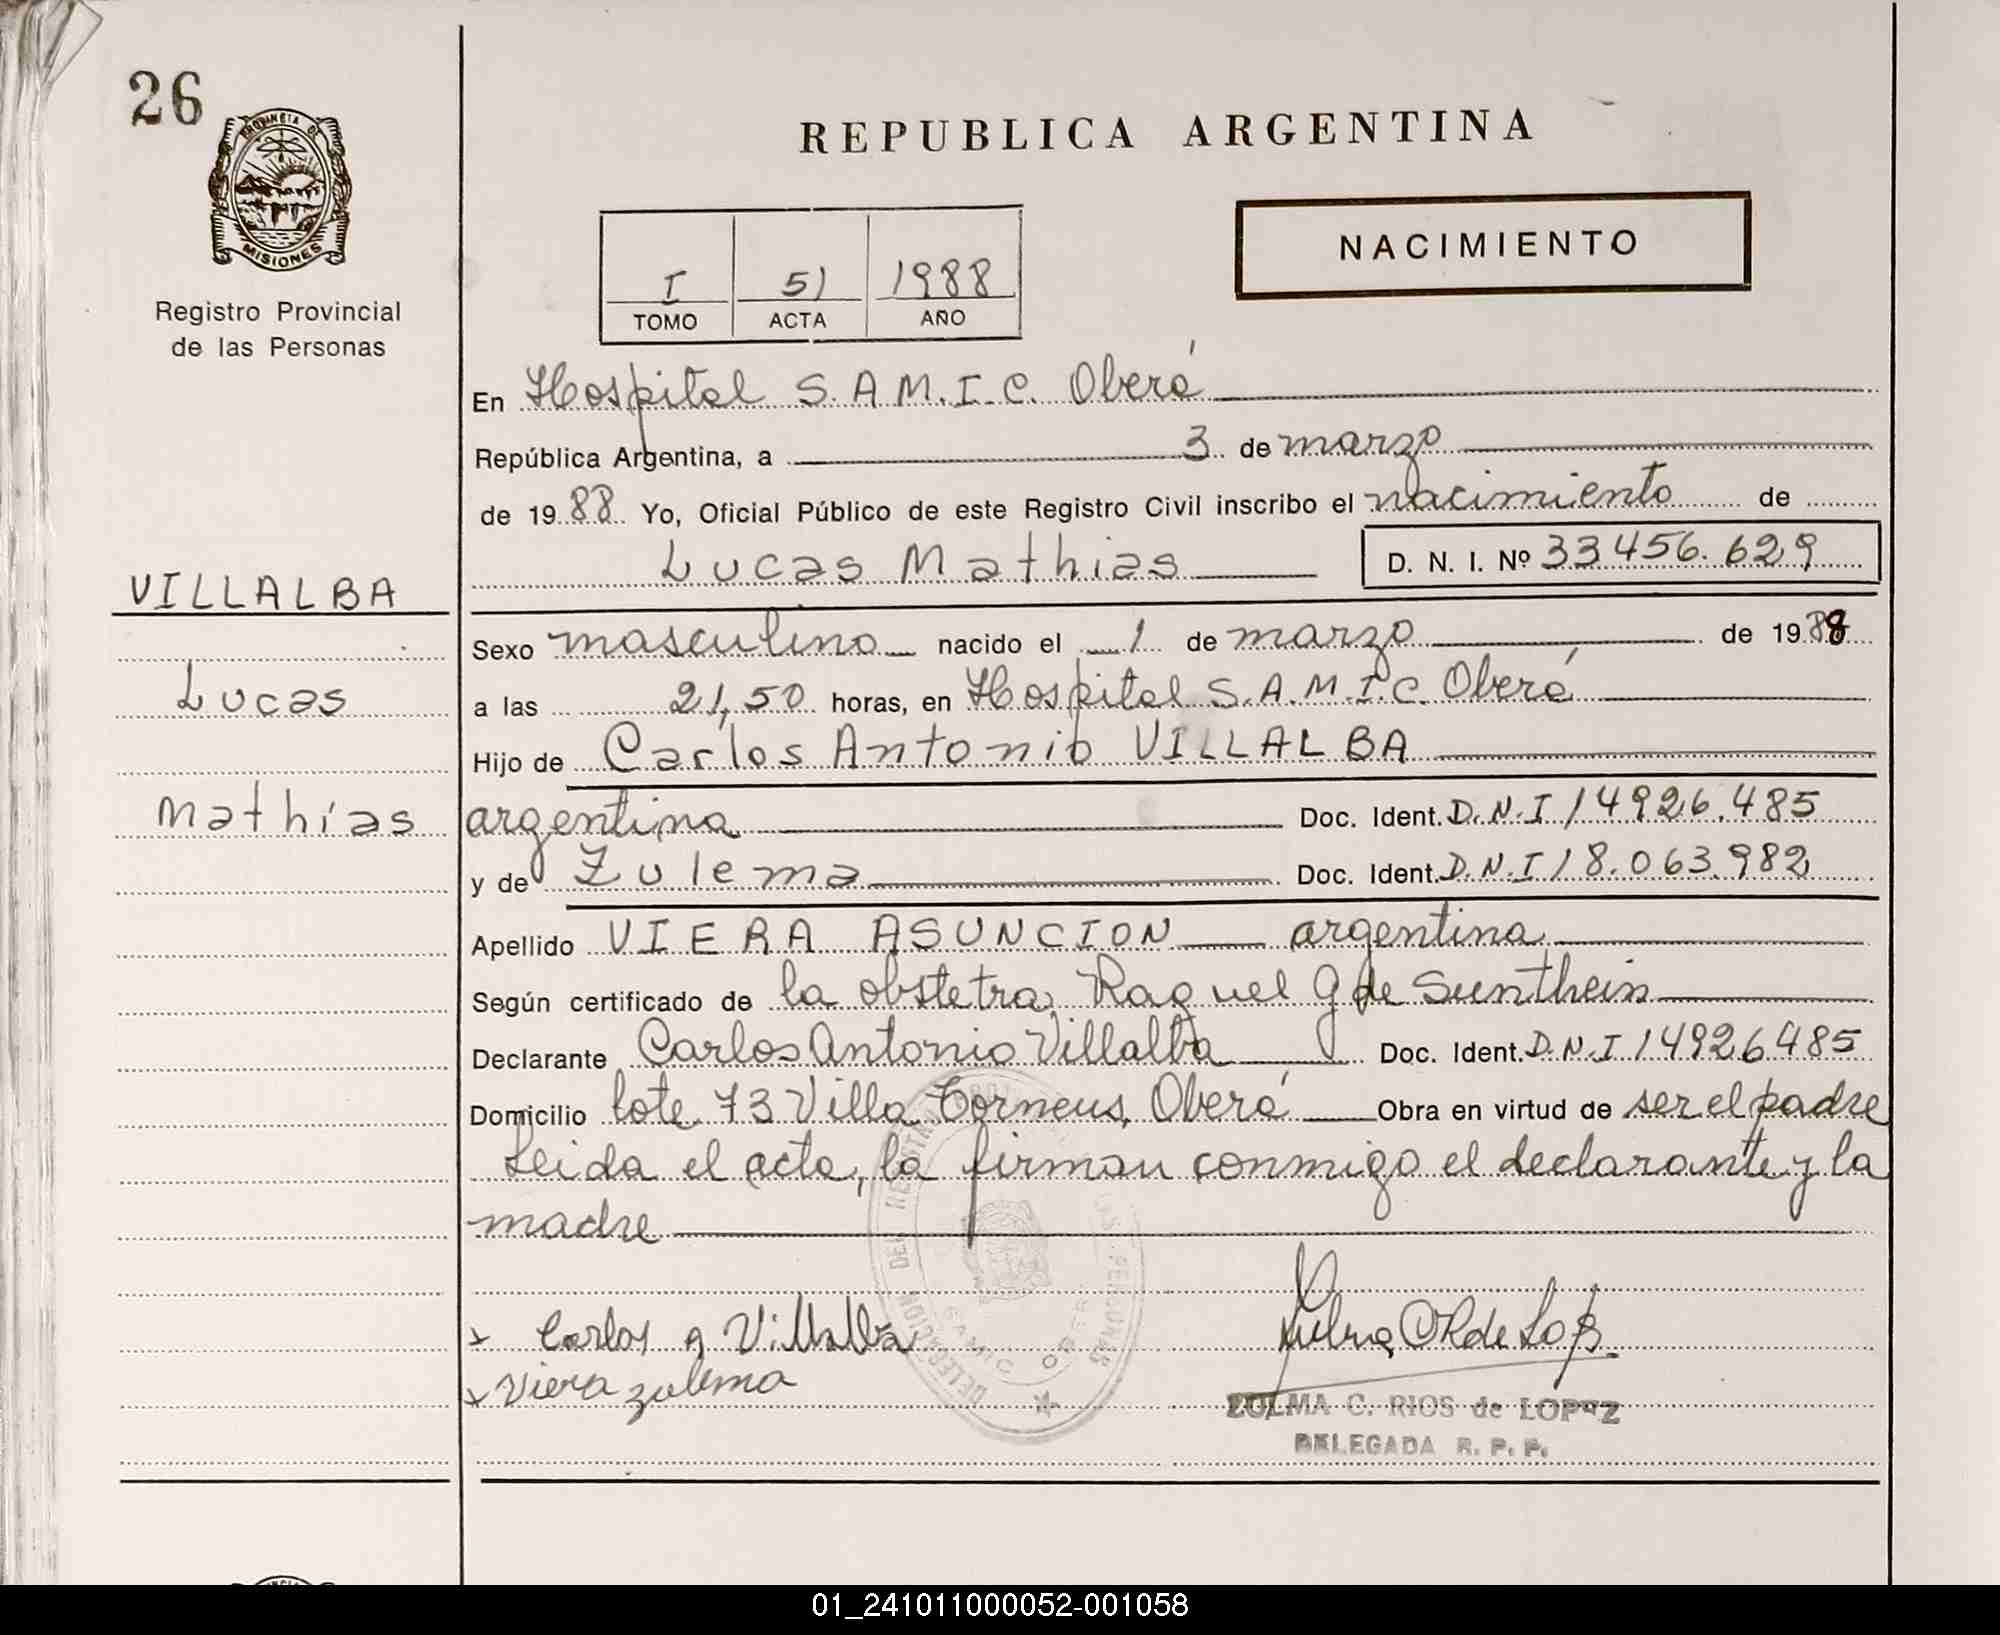 26
PROVINCIA DE
MISIONES
Registro Provincial
de las Personas
REPUBLICA ARGENTINA
NACIMIENTO
I 51 1988
TOMO ACTA AÑO
En Hospital S.A.M.I.C. Oberá
República Argentina, a 3 de marzo
de 1988 Yo, Oficial Público de este Registro Civil inscribo el nacimiento de
Lucas Mathias D. N. I. Nº 33456.629
VILLALBA
Lucas
Mathías
Sexo masculino nacido el 1 de marzo de 1988
a las 21,50 horas, en Hospital S.A.M.I.C. Oberá
Hijo de Carlos Antonio VILLALBA
argentina Doc. Ident. D.N.I 14926.485
y de Zulema Doc. Ident. D.N.I 18.063.982
Apellido VIERA ASUNCION argentina
Según certificado de la obstetra Raquel G de Sunthein
Declarante Carlos Antonio Villalba Doc. Ident. D.N.I 14926485
Domicilio lote 73 Villa Torneus, Oberá Obra en virtud de ser el padre
Leida el acta, la firman conmigo el declarante y la
madre
Carlos A Villalba
Viera Zulema
DELEGACION DEL REGISTRO PERSONAS
SAMIC OBERA
ZULMA C. RIOS de LOPEZ
DELEGADA R. P. P.
01_241011000052-001058